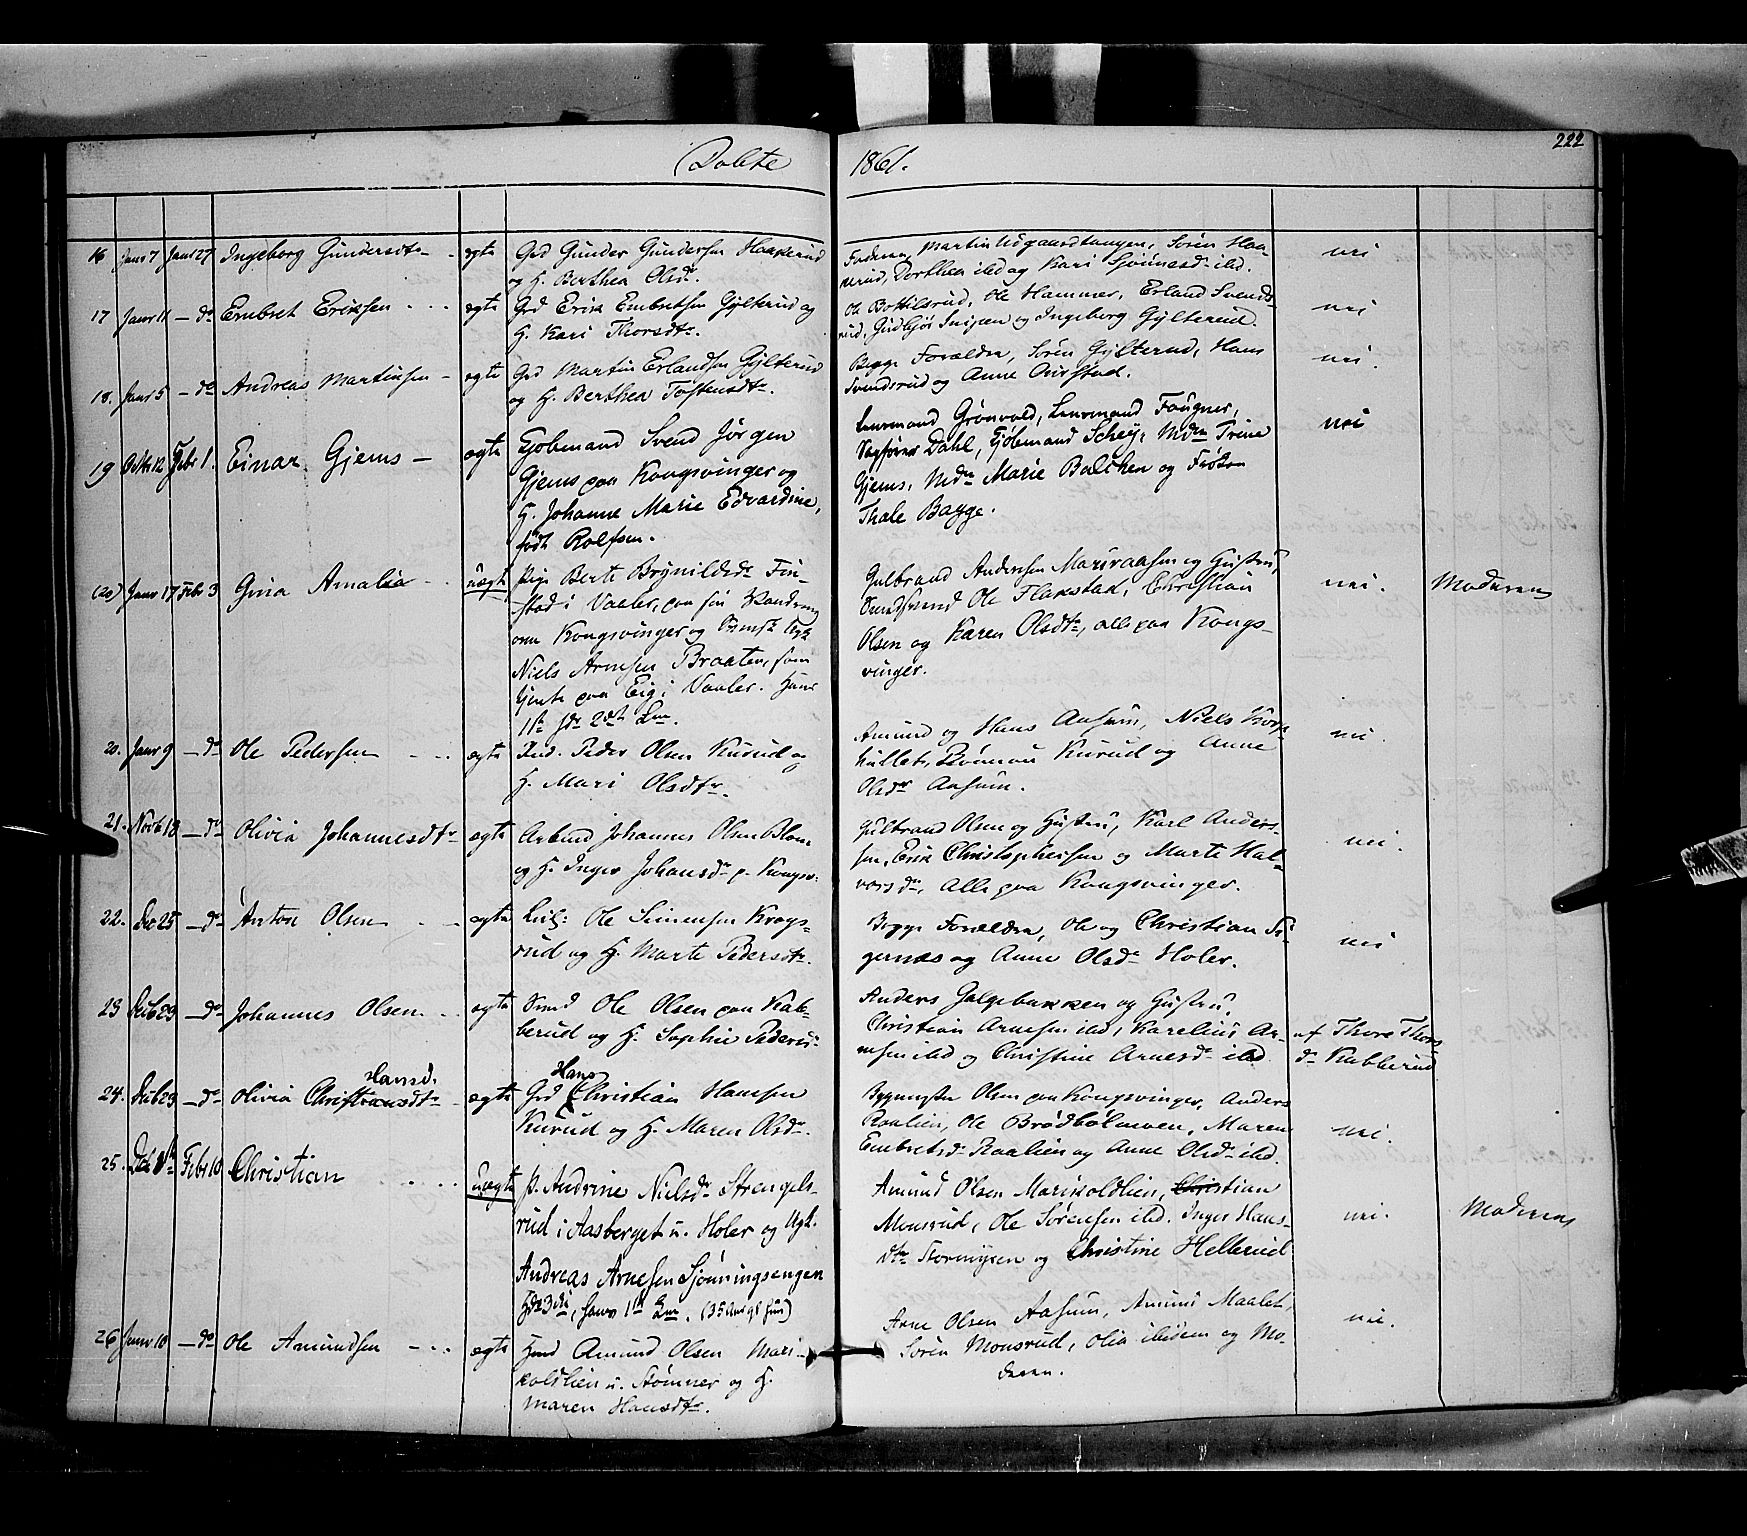 222
Døbte 1861.
16 Janr 7 Janr 27 Ingeborg Gundersdtr - ægte Grd Gunder Gundersen Haakerud
og H. Berthea Olsdr.
Faderen, Martin Udgaardtangen, Sören Haa-
kerud, Dorthea ibd og Kari ibd. nei
17 Janr 11 - do Embret Eriksen - - - ægte Grd Erik Embretsen Gylterud og
H. Kari Thorsdtr.
Ole Bottilsrud, Ole Hammer, Erland Svends-
rud, Gudbjör Snipen og Ingeborg Gylterud. nei
18. Janr 5 - do Andreas Martinsen - ægte Grd Martin Erlandsen Gylterud
og H. Berthea Tostensdtr.
Begge Forældre, Sören Gylterud, Hans
Svendsrud og Anne Aurstad. nei.
19 Octbr 12 Febr 1. Einar Gjems - ægte Kjøbmand Svend Jörgen
Gjems paa Kongsvinger og
H. Johanne Marie Edvardine,
født Rolfsen.
Lensmand Grönvold, Lensmand Faugner,
Sagfører Dahl, Kjøbmand Schey, Mdm Trine
Gjems, Mdm Marie Balchen og Frøken
Thale Bagge. nei
(20) Janr 17 Febr 3 Gina Amalia - - uægte Pige Berte Brynildsdr Fin-
stad i Vaaler, paa sin Vandring
om Kongsvinger og
Niels Arnesen Braaten, som
tjente paa Eig i Vaaler. Hans
1st
Gulbrand Andersen Mariraasen og Hustru,
Ole Flakstad, Christian
Olsen og Karen Olsdtr, alle paa Kongs-
vinger. nei. Moderen
20. Janr 9 - do Ole Pedersen - - - ægte Ind. Peder Olsen Kurud og
H. Mari Olsdtr.
Amund og Hans Aasum, Niels Korp-
hullet, Rönnau Kurud og Anne
Olsdr Aasum. nei.
21. Novb 18 - do Olivia Johannesdtr ægte Arbmd Johannes Olsen
og H. Inger Johansdr p. Kongsv.
Gulbrand Olsen og Hustru, Karl Anders-
sen, Erik Christophersen og Marte Hal-
vorsdr, alle paa Kongsvinger. nei.
22. Dec 25 - do Anton Olsen - - ægte Ole Simensen Krogs-
rud og H. Marte Pedersdtr.
Begge Forældre, Ole og Christian Si-
gernæs og Anne Olsdr Holer. nei
23 - do Johannes Olsen - - ægte Smed Ole Olsen paa Kab-
berud og H. Sophie Pedersd.
Anders Galgebakken og Hustru,
Christian Arnesen ibd, Karelius Ar-
nesen ibd og Christine Arnesdr ibd. af Thore Thors
dr Kabberud
24. - do Olivia Christiansdtr Hansd. ægte Grd Hans Christian Hansen
Kurud og H. Maren Olsdr.
Bygmester Olsen paa Kongsvinger, Anders
Raalien, Ole Brødbølmoen, Maren
Embretsdr Raalien og Anne Olsdr ibd. nei.
25. Febr 10 Christian - - - - uægte P. Andrine Nielsdr Strengels-
rud i Aasberget u. Holer og Ugk.
Andreas Arnesen Sjönningsengen
Hds 3die, hans 1ste Lm. (35 Aar gl hun)
Amund Olsen Marikoldlien, Christian
Monsrud, Ole Sørensen ibd. Inger Hans-
dtr Stormyren og Christine Hellerud nei. Moderen
26 Janr 10 - do Ole Amundsen - - - ægte Hmd Amund Olsen Mari-
koldlien u. Stømner og H.
Maren Hansdtr.
Arne Olsen Aasum, Amund Maalet,
Sören Monsrud, Olia ibidem og Mo-
deren. nei.